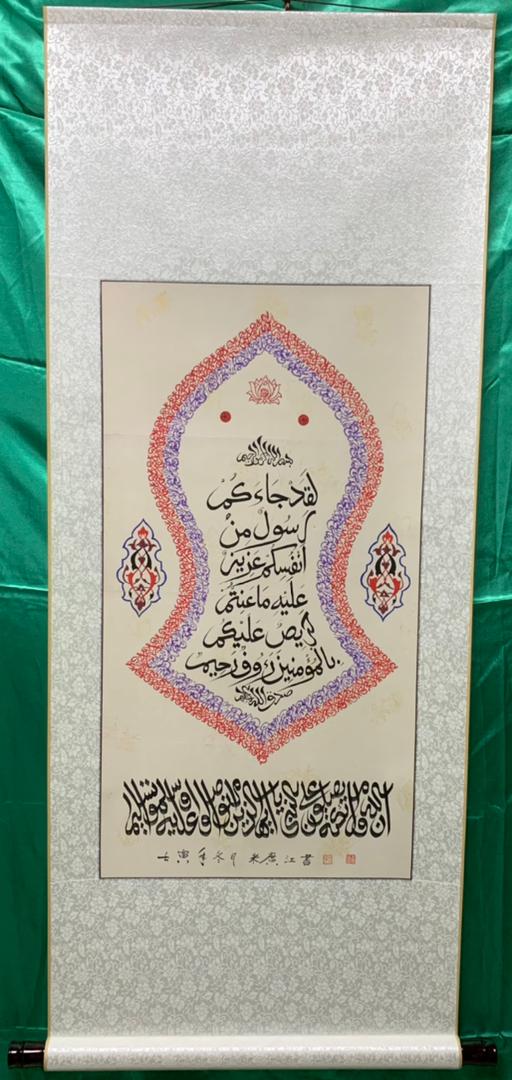 بسم الله الرحمن الرحيم
لَقَدْ جَاءَكُمْ
رَسُولٌ مِنْ
أَنْفُسِكُمْ عَزِيزٌ
عَلَيْهِ مَا عَنِتُّمْ
حَرِيصٌ عَلَيْكُمْ
بِالْمُؤْمِنِينَ رَءُوفٌ رَحِيمٌ
صدق الله العظيم
ان الله وملائكته يصلون على النبي يا ايها الذين امنوا صلوا عليه وسلموا تسليما
壬寅年冬月 米廣江書